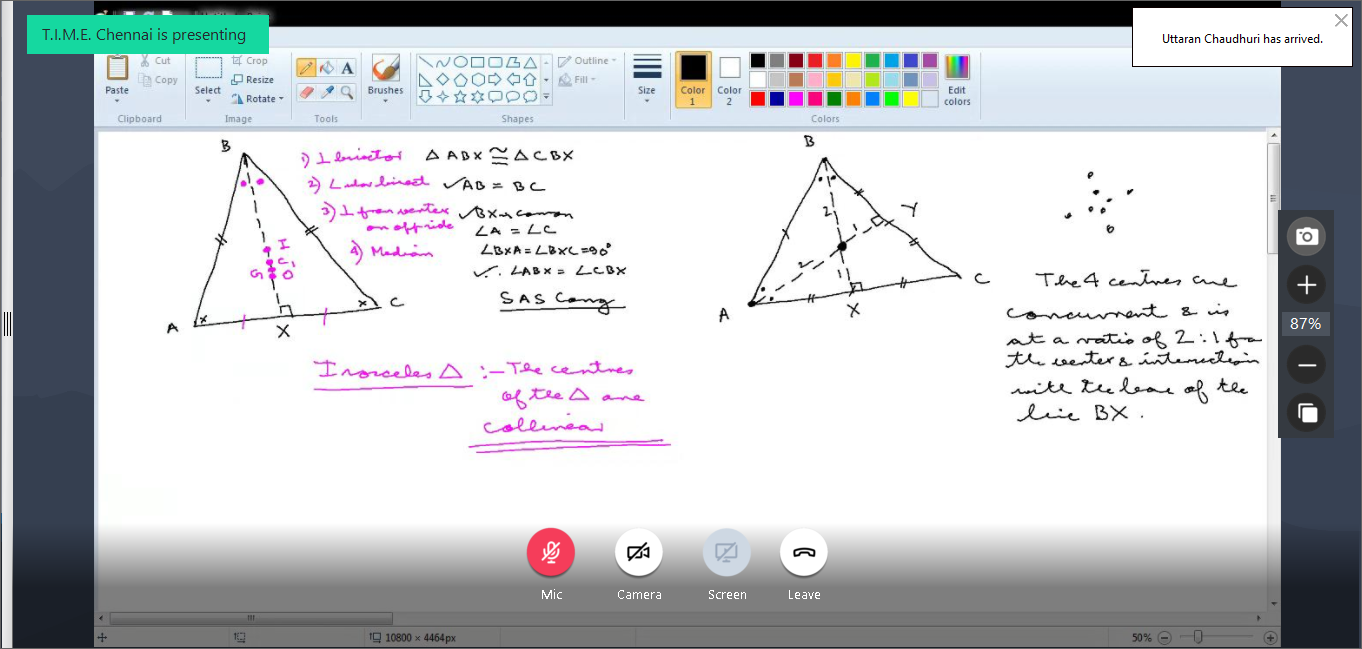 T.I.M.E. Chennai is presenting
Uttaran Chaudhuri has arrived.
Paste
Cut
Copy
Clipboard
Select
Crop
Resize
Rotate
Image
A
Tools
Brushes
Outline
Fill
Shapes
Size
Color 1
Color 2
Edit colors
Colors
B
A
C
X
I
C1
G
O
1) ⊥ bisector
2) ∠ular bisect
3) ⊥ from vertex
on opp side
4) Median
△ ABX ≅ △ CBX
✓ AB = BC
✓ BX is common
∠A = ∠C
∠BXA = ∠BXC = 90°
✓ ∴ ∠ABX = ∠CBX
SAS Cong
Isosceles △ :- The centres
of the △ are
collinear
B
Y
2
1
2
1
A
X
C
The 4 centres are
concurrent & is
at a ratio of 2:1 fro
the vertex & intersection
with the base of the
line BX.
87%
Mic
Camera
Screen
Leave
10800 × 4464px
50%